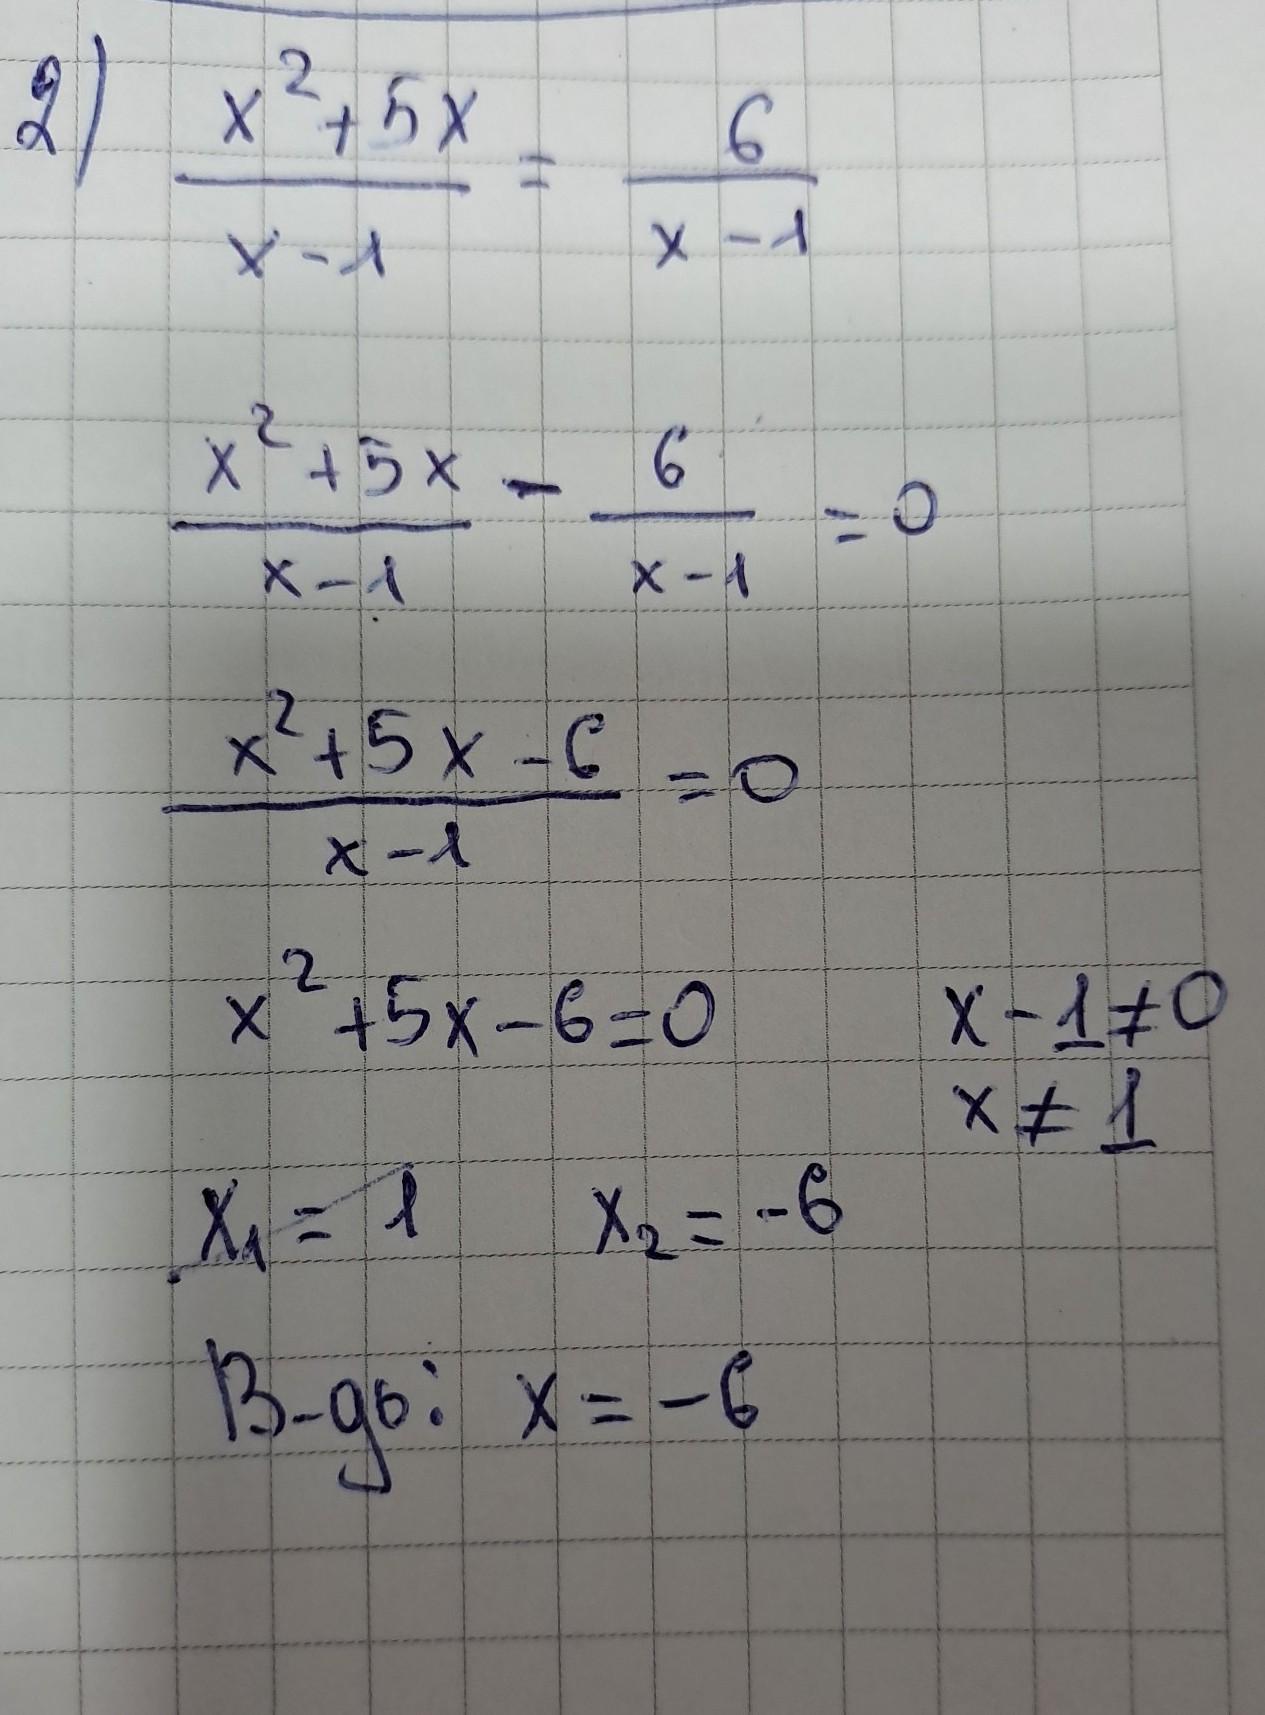 2) x²+5x / x-1 = 6 / x-1
x²+5x / x-1 - 6 / x-1 = 0
x²+5x-6 / x-1 = 0
x²+5x-6=0 x-1≠0
x≠1
x₁=1 x₂=-6
В-дь: x=-6